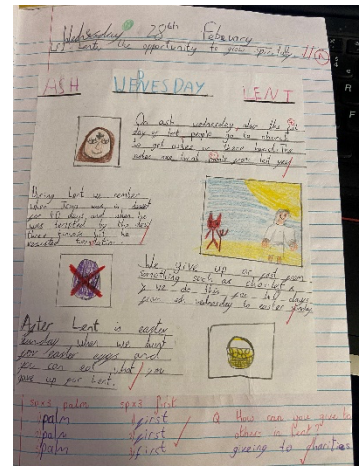 Wednesday 28th February
Lent, the opportunity to grow spiritually.
ASH WEDNESDAY LENT
On ash wednesday also the first
day of lent people go to church
to get ashes on there
palm last year
During Lent we
when Jesus was in desert
for 40 days and when he
was tempted by the devil
three but he
resisted temptation
We give up or food
something such as
we do this for 40 days
from ash wednesday to easter sunday
After Lent is easter
Sunday when we hunt
for easter eggs and
you can eat what you
gave up for Lent.
sp x3 palm sp x3 first
1) palm 1) first
palm first
palm first
Q. How can you give to
others in Lent?
giveing to charities